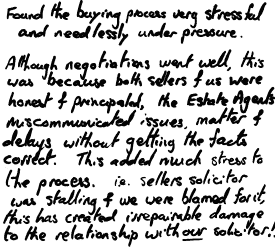 Found the buying process very stressful
and needlessly under pressure.
Although negotiations went well, this
was because both sellers & us were
honest & principaled, the Estate Agents
miscommunicated issues, matter &
delays without getting the facts
correct. This added much stress to
the process. i.e. sellers solicitor
was stalling & we were blamed for it,
this has created irrepairable damage
to the relationship with our solicitor.!